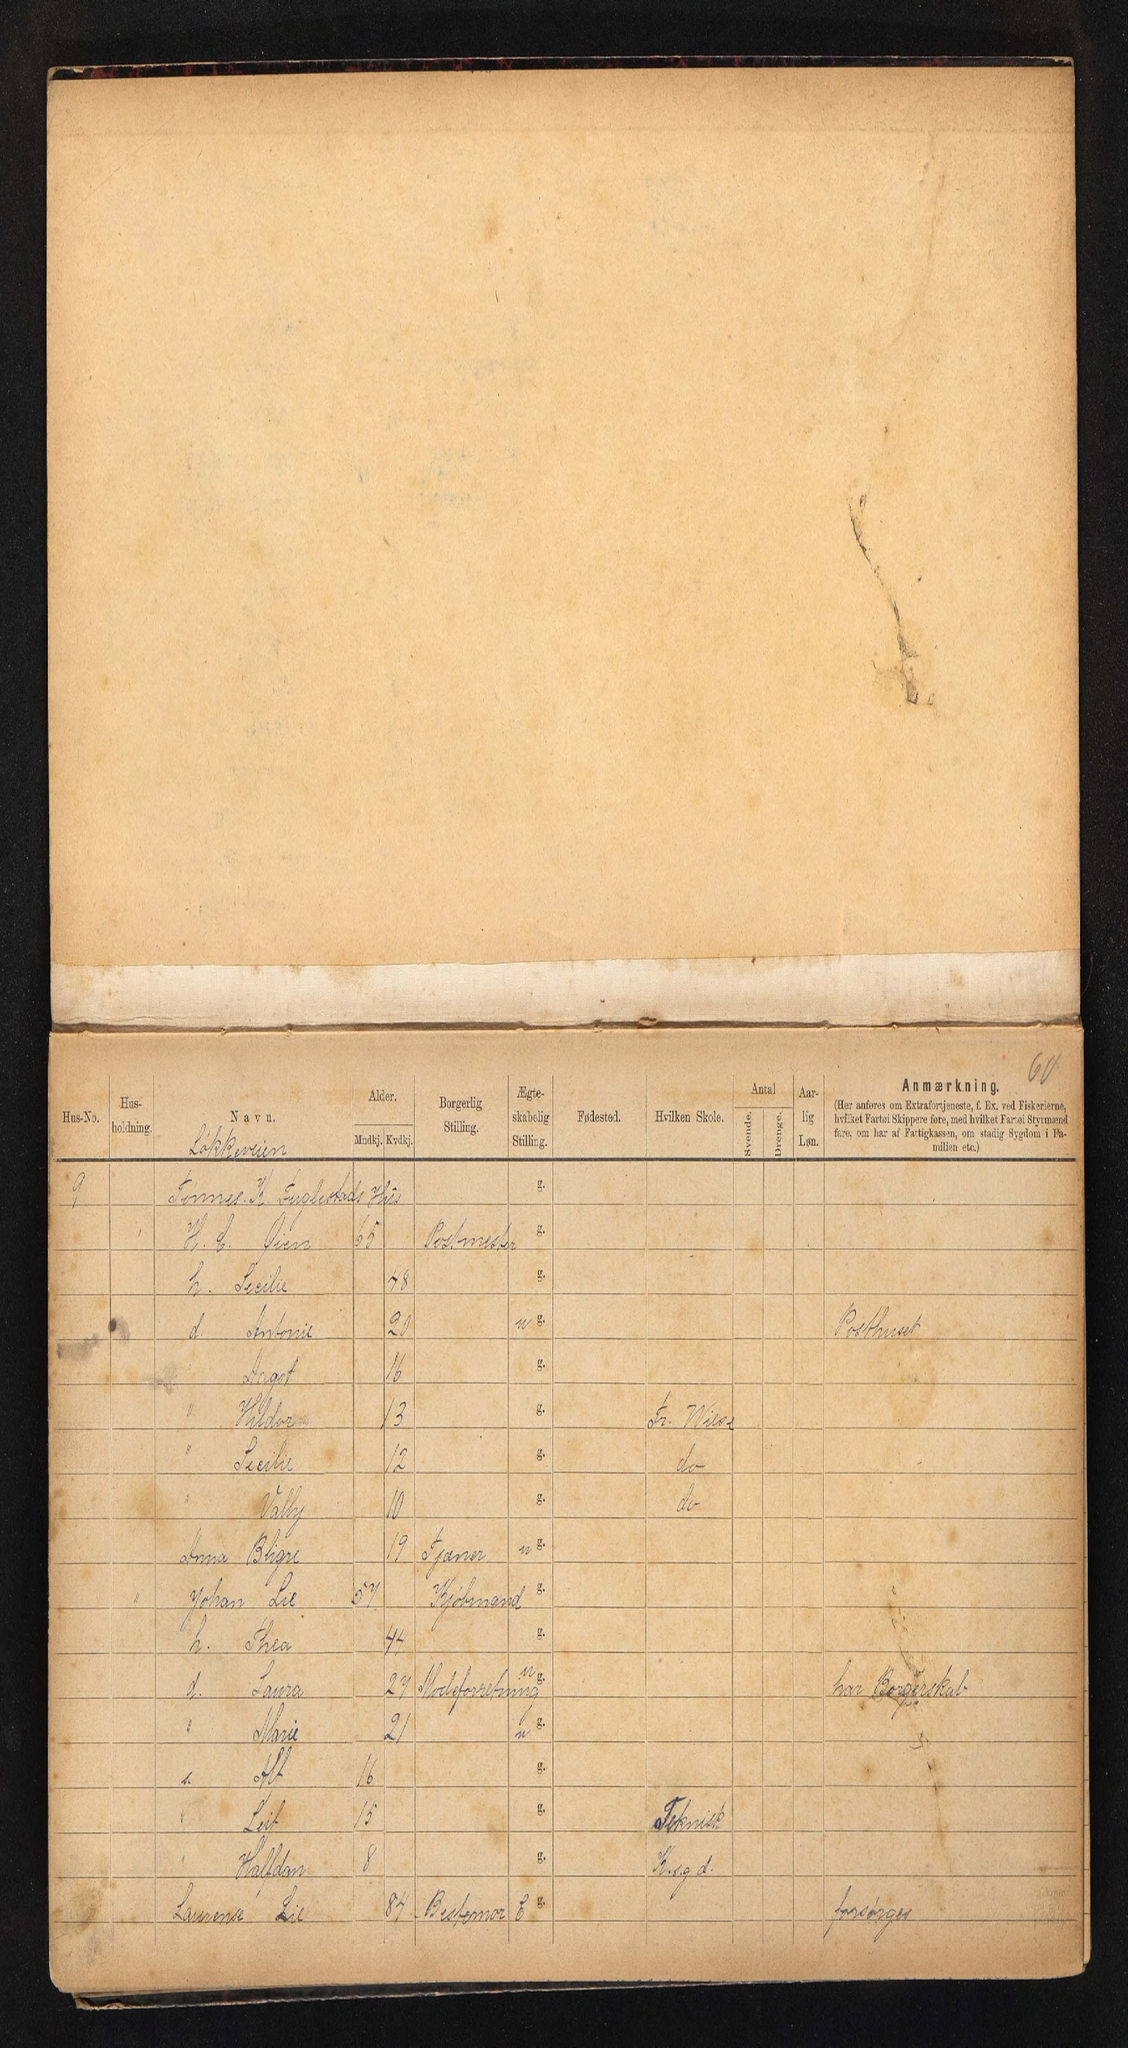 60
Hus-No. Hus-holdning. Navn. Alder. Mndkj. Kvdkj. Borgerlig Stilling. Ægte-skabelig Stilling. Fødested. Hvilken Skole. Antal Svende. Drenge. Aar-lig Løn. Anmærkning.
(Her anføres om Extrafortjeneste, f. Ex. ved Fiskerierne, hvilket Fartøi Skippere føre, med hvilket Fartøi Styrmænd fare, om har af Fattigkassen, om stadig Sygdom i Familien etc.)
Løkkeveien
9 Tønnes K. Fuglestads Hus g.
H. C. Øien 65 Postmester g.
h. Secilie 48 g.
d. Antonie 20 u g. Posthuset
" Dagot 16 g.
" Hildor 13 g. Fr. Wiese
" Secilie 12 g. do
" Valby 10 g. do
Anna Bligre 19 Tjener u g.
" Johan Lie 57 Kjøbmand g.
h. Thea 44 g.
d. Laura 27 Modeforretning u g. har Borgerskab
" Marie 21 u g.
s. Alf 16 g.
" Leif 15 g. Teknisk
" Halfdan 8 g. K.s.g d.
Laurense Lie 84 Bestemor E g. forsørges